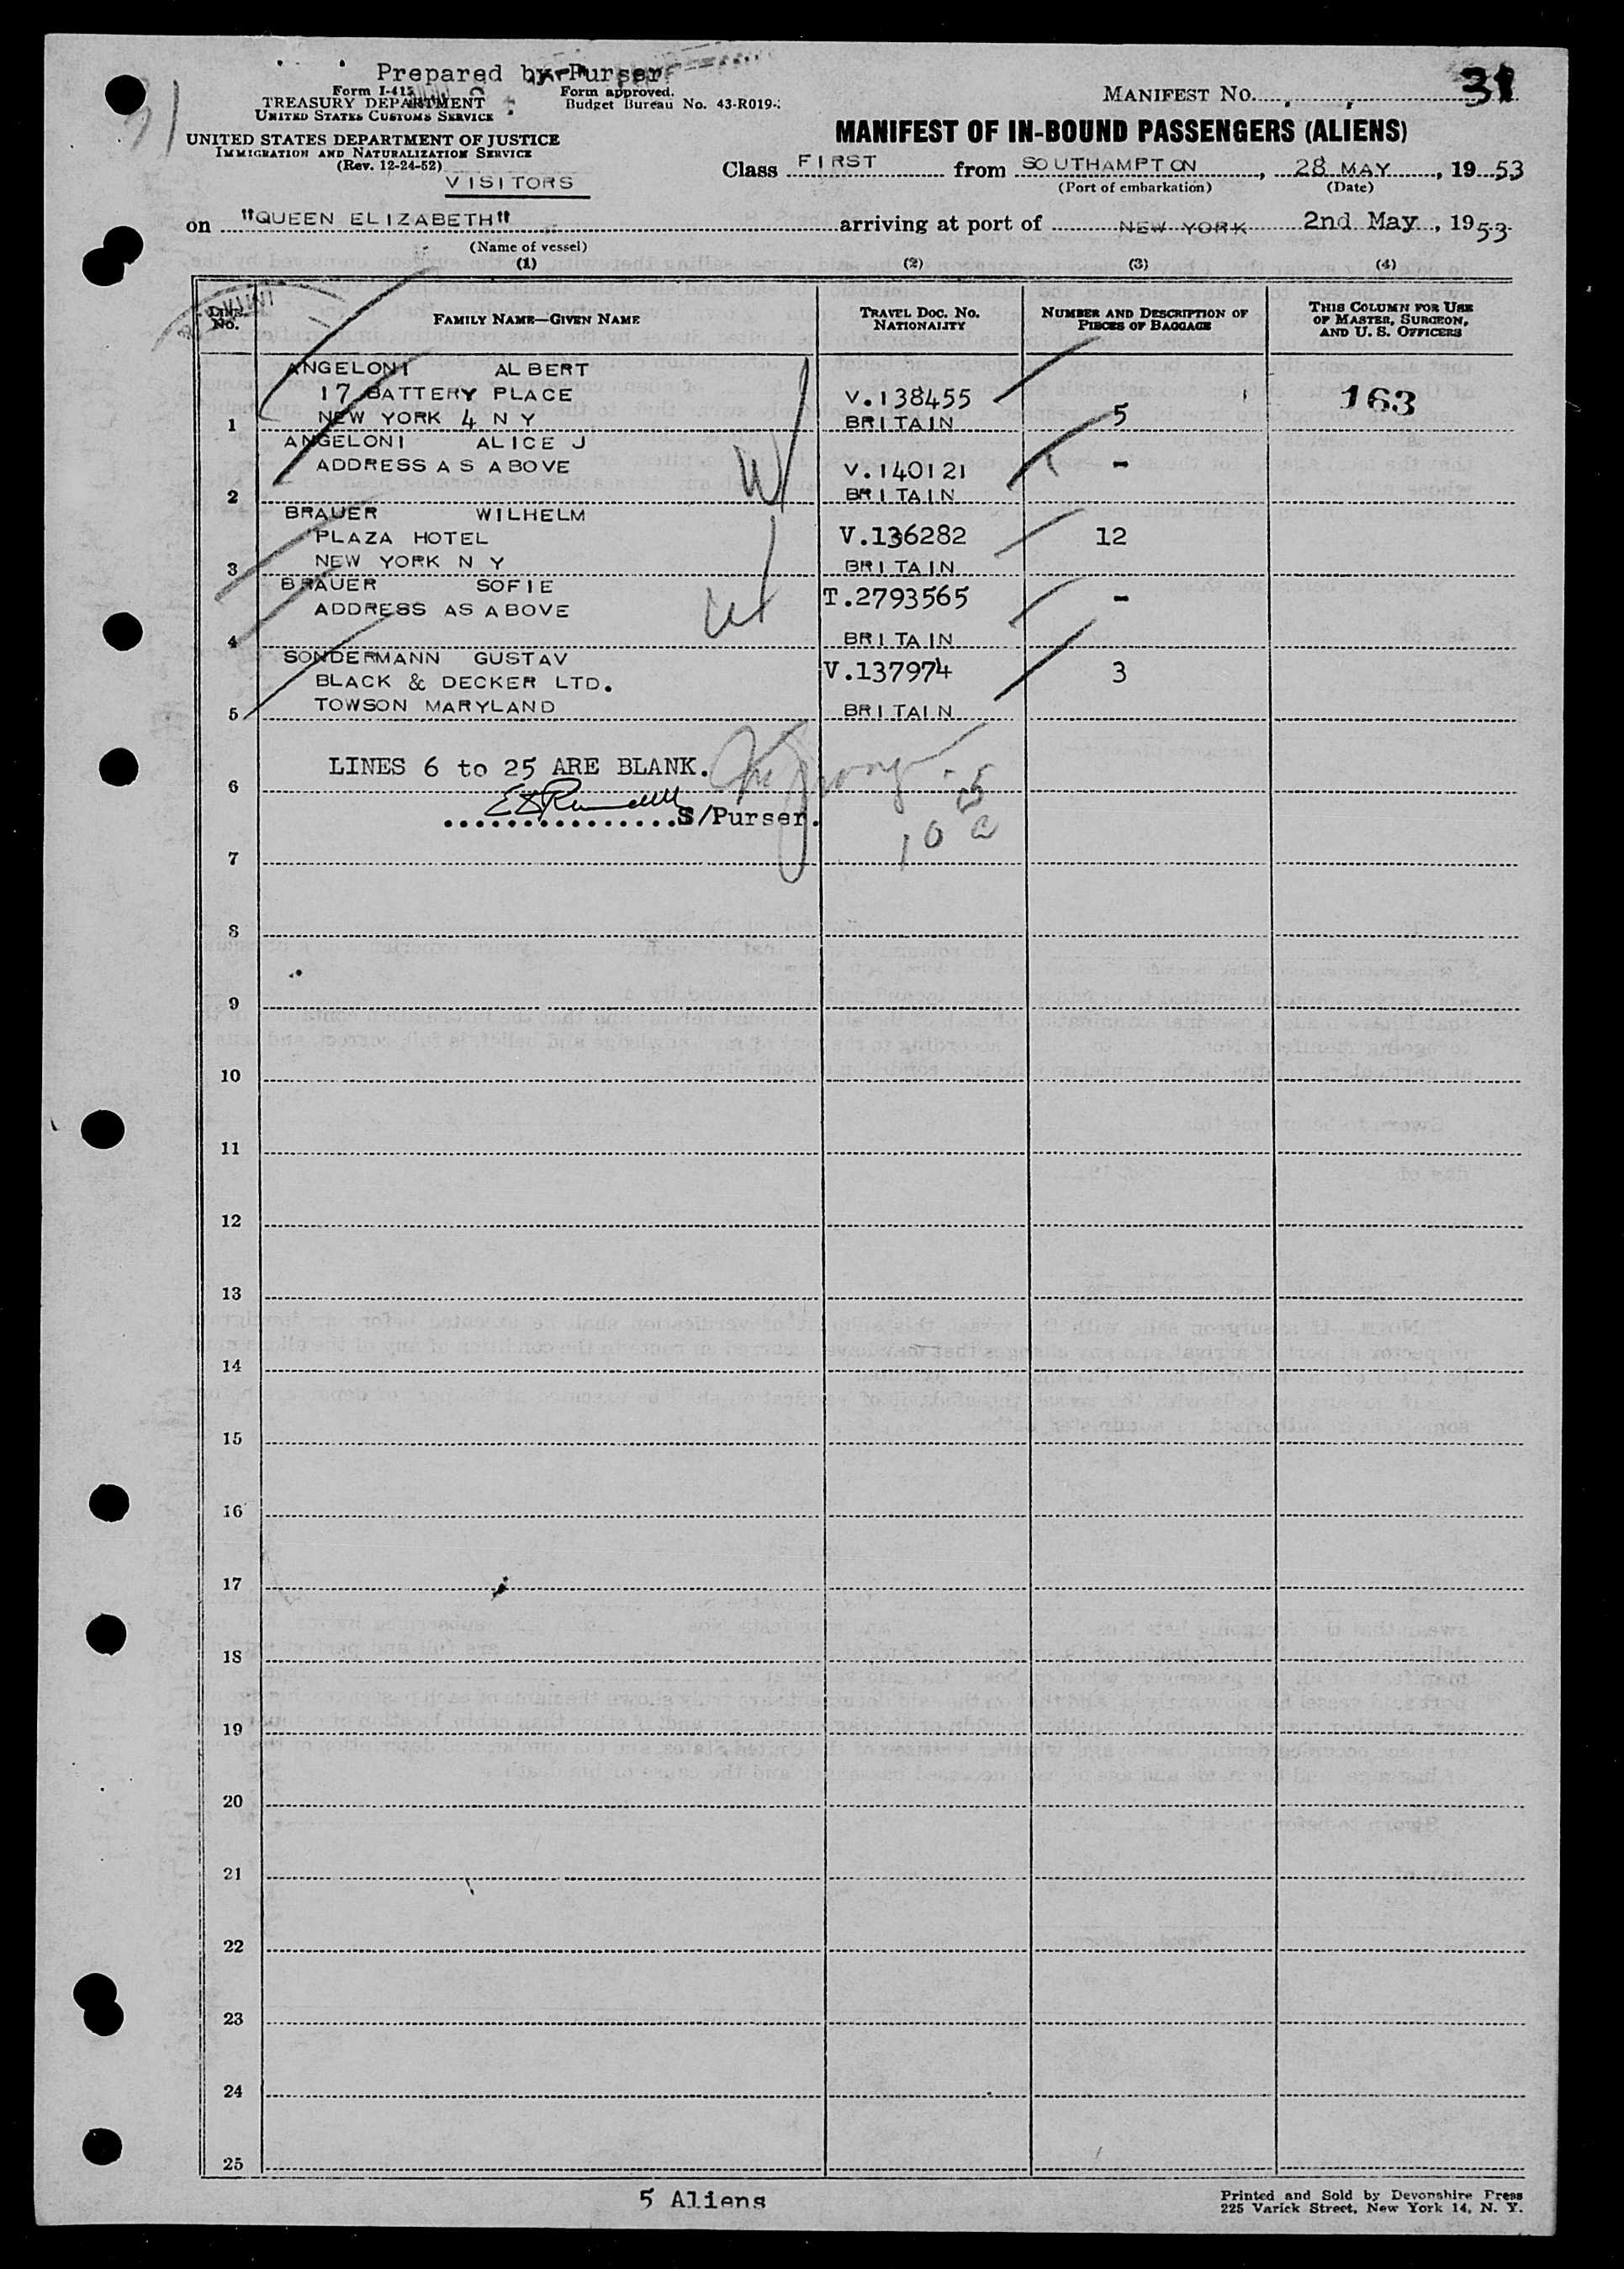 Prepared by Purser
Form I-415
TREASURY DEPARTMENT
UNITED STATES CUSTOMS SERVICE
Form approved.
Budget Bureau No. 43-R019-
UNITED STATES DEPARTMENT OF JUSTICE
IMMIGRATION AND NATURALIZATION SERVICE
(Rev. 12-24-52)
VISITORS
MANIFEST NO. 31
MANIFEST OF IN-BOUND PASSENGERS (ALIENS)
Class FIRST from SOUTHAMPTON, 28 MAY, 1953
(Port of embarkation) (Date)
on "QUEEN ELIZABETH" arriving at port of NEW YORK 2nd May, 1953
(Name of vessel)
(1) (2) (3) (4)
LINE No. FAMILY NAME—GIVEN NAME TRAVEL DOC. NO. NATIONALITY NUMBER AND DESCRIPTION OF PIECES OF BAGGAGE THIS COLUMN FOR USE OF MASTER, SURGEON, AND U. S. OFFICERS
ANGELONI ALBERT
17 BATTERY PLACE V.138455 163
1 NEW YORK 4 N Y BRITAIN 5
ANGELONI ALICE J
ADDRESS AS ABOVE V.140121 -
2 BRITAIN
BRAUER WILHELM
PLAZA HOTEL V.136282 12
3 NEW YORK N Y BRITAIN
BRAUER SOFIE
ADDRESS AS ABOVE T.2793565 -
4 BRITAIN
SONDERMANN GUSTAV
BLACK & DECKER LTD. V.137974 3
5 TOWSON MARYLAND BRITAIN
LINES 6 to 25 ARE BLANK.
6
S/Purser.
7
8
9
10
11
12
13
14
15
16
17
18
19
20
21
22
23
24
25
5 Aliens
Printed and Sold by Devonshire Press
225 Varick Street, New York 14, N. Y.